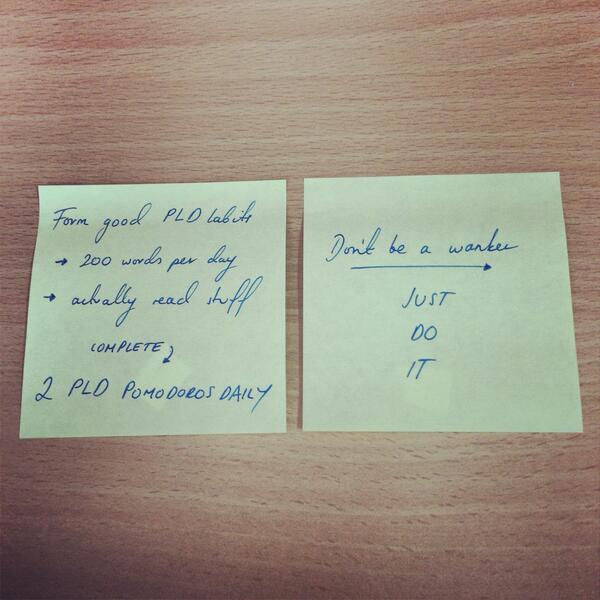 Form good PLD habits
→ 200 words per day
→ actually read stuff
COMPLETE
2 PLD POMODOROS DAILY
Don't be a wanker
JUST
DO
IT